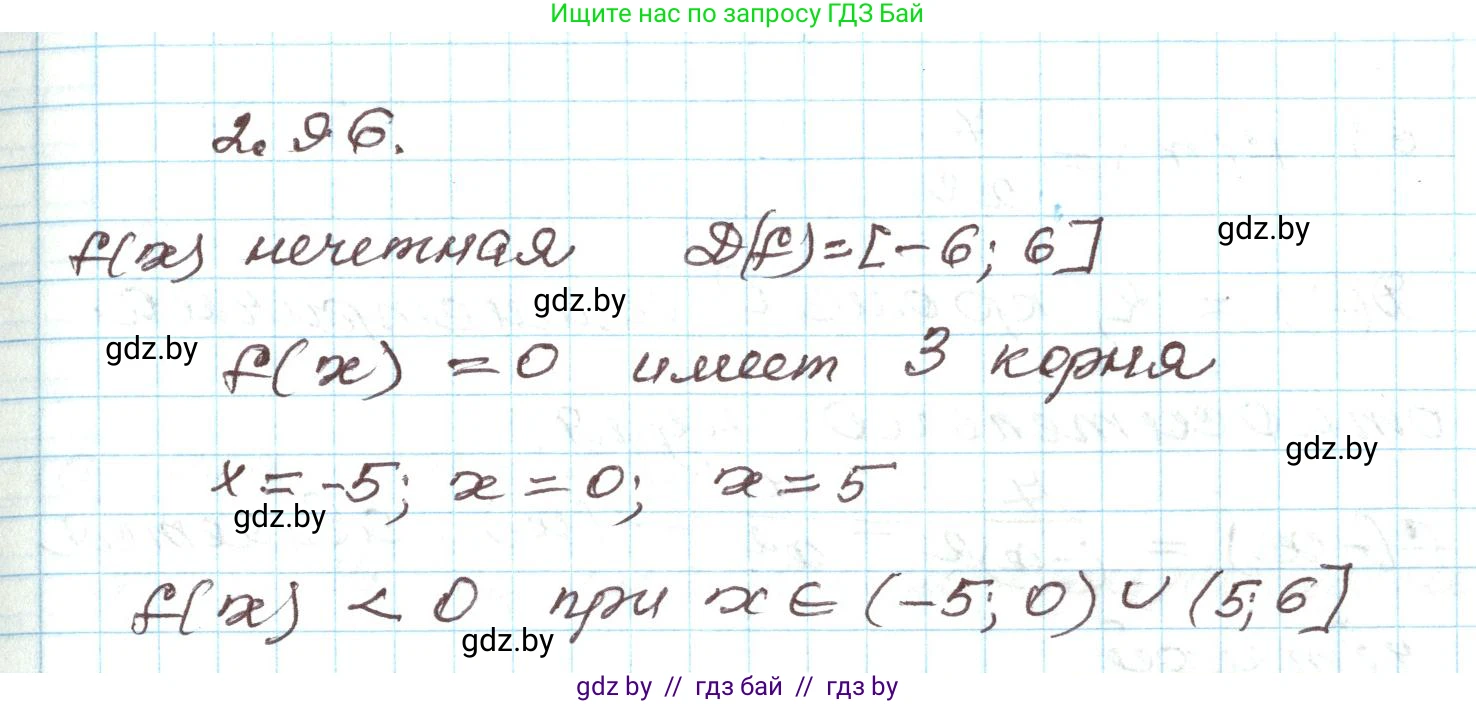 Ищите нас по запросу ГДЗ Бай
2.96.
f(x) нечетная D(f)=[-6; 6]
gdz.by
gdz.by
gdz.by
f(x) = 0 имеет 3 корня
gdz.by
x = -5; x = 0; x = 5
gdz.by
f(x) < 0 при x ∈ (-5; 0) ∪ (5; 6]
gdz.by
gdz by // гдз бай // гдз by